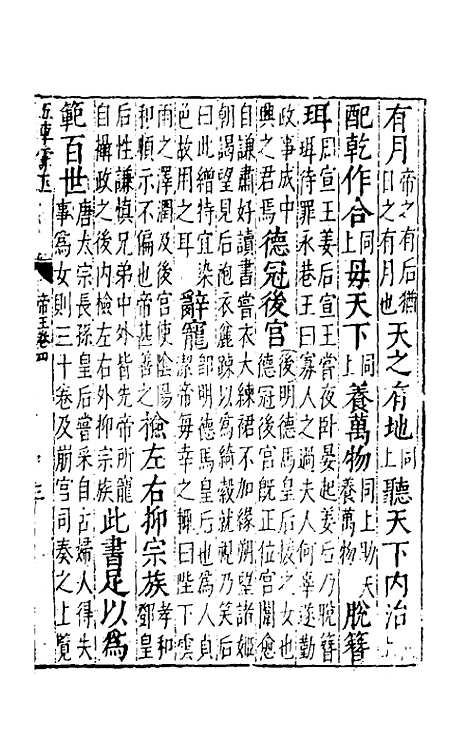 有月帝之有后猶日之有月也天之有地同上聽天下内治同上
配乾作合同上毋天下同上養萬物同上助天養萬物脫簪
珥周宣王姜后宣王嘗夜卧晏起姜后乃脫簪珥待罪永巷王曰寡人之過夫人何辜遂勤
政事成中興之君焉德冠後宮後明德馬皇后援之女也德冠後宮既正位宮闈愈
自謙肅好讀書嘗衣大練裙不加緣朔望諸姬朝謁望見后袍衣麤踈以為綺縠就視乃笑后
曰此繒特宜染色故用之耳辭寵明德馬皇后也為人貞潔帝每幸之輒曰陛下雲
雨之澤潤及後宮使陰陽和順示不偏也帝甚善之檢左右抑宗族孝和鄧皇
后性謙慎兄弟中外皆先帝所寵自攝政之後内檢左右外抑宗族此書足以為
範百世唐太宗長孫皇后嘗采自古婦人得失事為女則三十卷及崩宮司奏之上覽
五車霏玉 帝王卷四